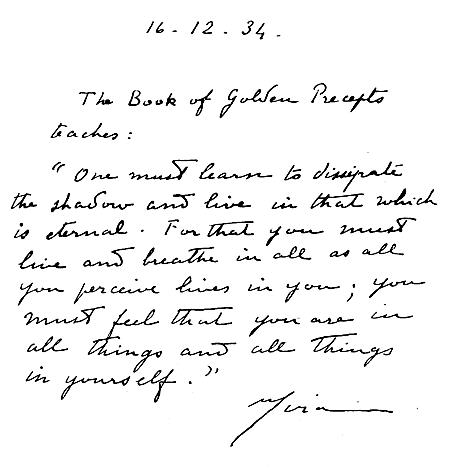 16 - 12 . 34 .
The Book of Golden Precepts
teaches :
" One must learn to dissipate
the shadow and live in that which
is eternal . For that you must
live and breathe in all as all
you perceive lives in you ; you
must feel that you are in
all things and all things
in yourself . "